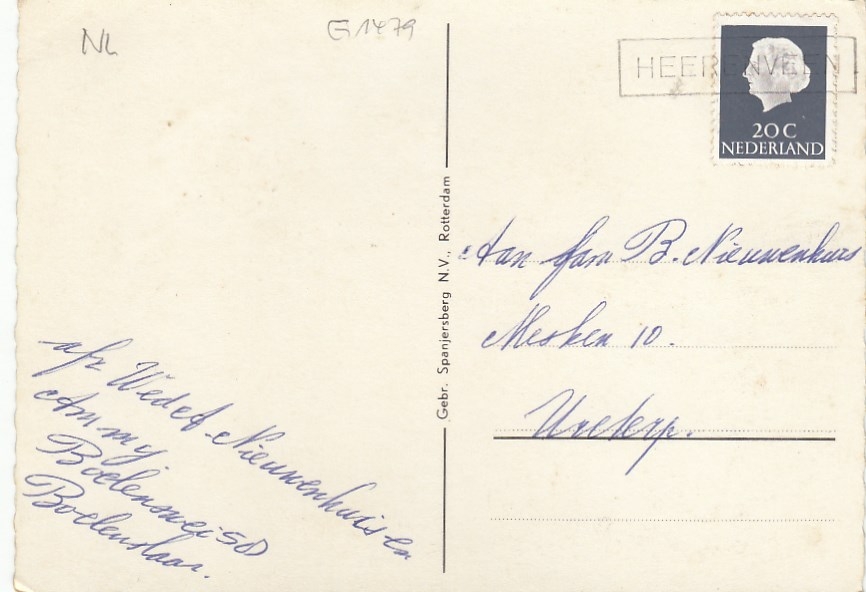 NL
G1479
HEERENVEEN
20 C
NEDERLAND
Gebr. Spanjersberg N.V., Rotterdam
Aan fam B. Nieuwenhuis
Mesken 10.
Ureterp.
afz Weded. Nieuwenhuis en
Ammy.
Boelenswei 50
Boelenslaan.